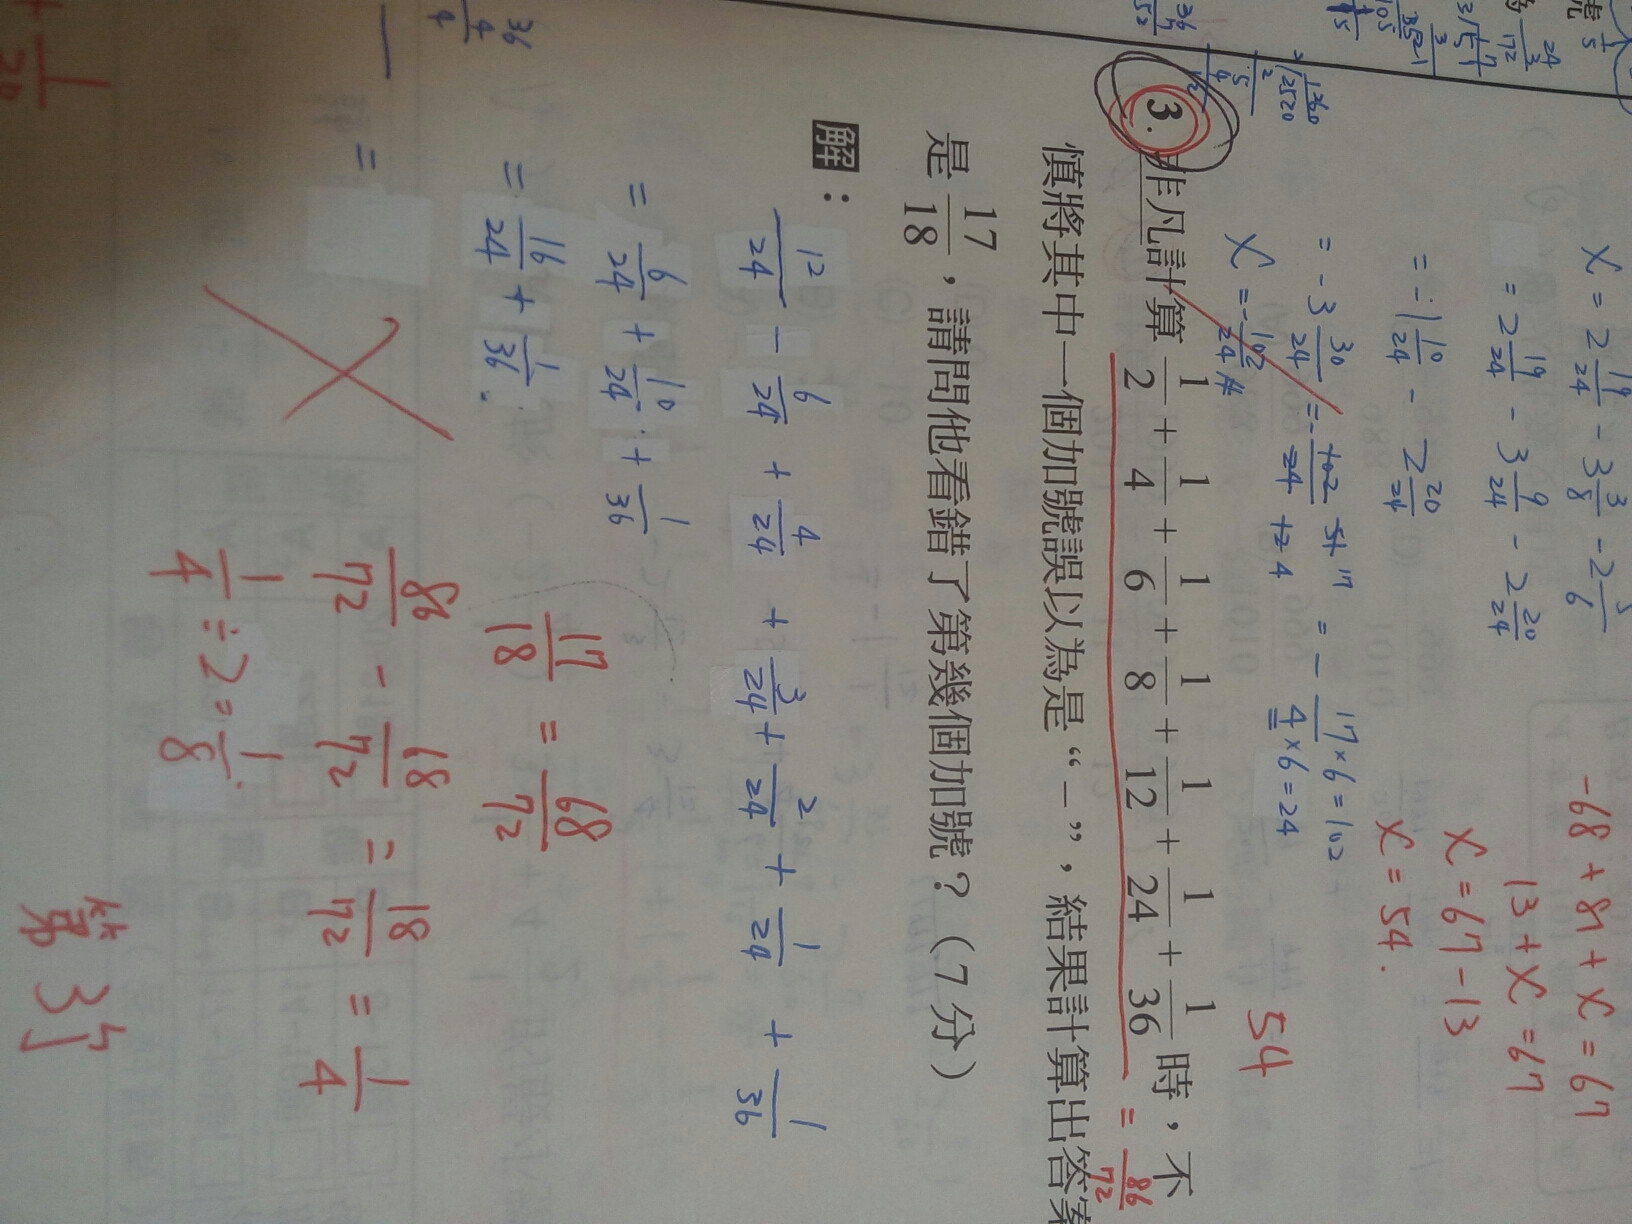 x = 2 19/24 - 3 3/8 - 2 5/6
= 2 19/24 - 3 9/24 - 2 20/24
= -1 10/24 - 2 20/24
= -3 30/24 = -102/24 = -17×6=102/4×6=24
x = -102/24
-68 + 81 + x = 67
13 + x = 67
x = 67 - 13
x = 54.
54
3. 非凡計算 1/2 + 1/4 + 1/6 + 1/8 + 1/12 + 1/24 + 1/36 時，不
= 86/72
慎將其中一個加號誤以為是“－”，結果計算出答案
是 17/18，請問他看錯了第幾個加號？（7 分）
解：
12/24 - 6/24 + 4/24 + 3/24 + 2/24 + 1/24 + 1/36
= 6/24 + 10/24 + 1/36
= 16/24 + 1/36
=
17/18 = 68/72
86/72 - 68/72 = 18/72 = 1/4
1/4 ÷ 2 = 1/8
第 3 個